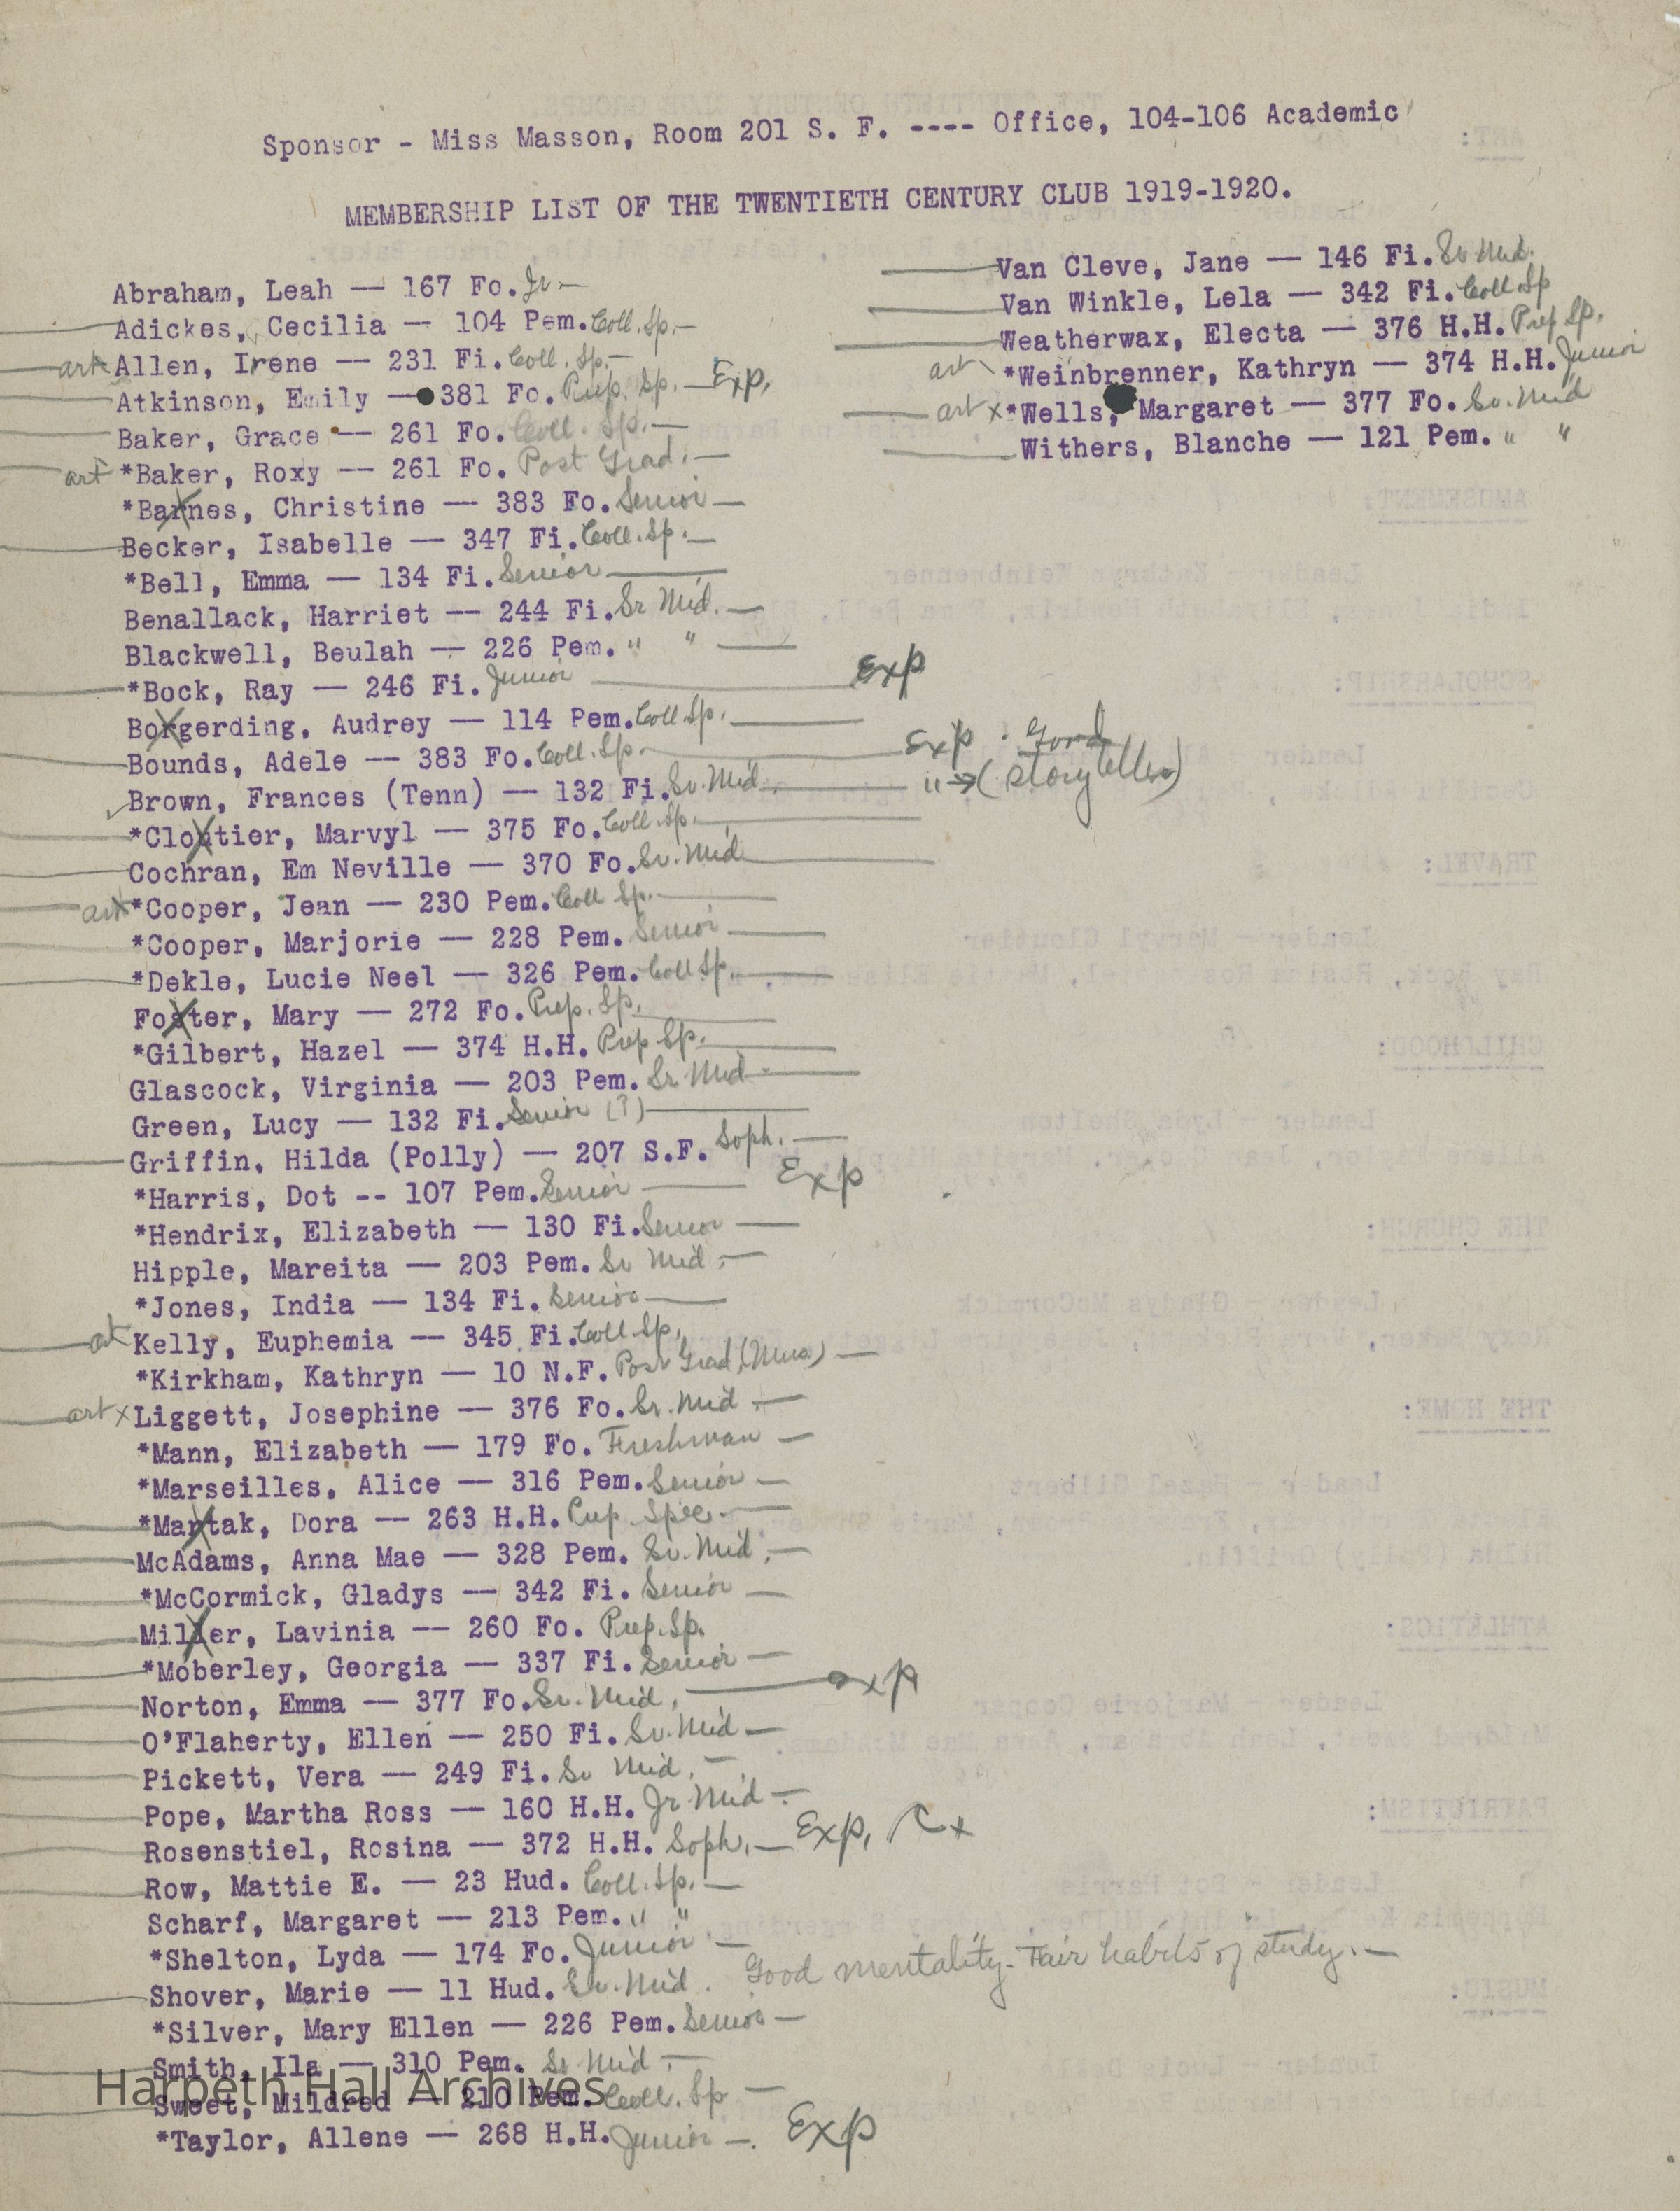 Sponsor - Miss Masson, Room 201 S. F. ---- Office, 104-106 Academic
MEMBERSHIP LIST OF THE TWENTIETH CENTURY CLUB 1919-1920.
Abraham, Leah -- 167 Fo. Jr -
Adickes, Cecilia -- 104 Pem. Coll. Sp. -
art Allen, Irene -- 231 Fi. Coll. Sp. -
Atkinson, Emily -- 381 Fo. Prep. Sp. - Exp.
Baker, Grace -- 261 Fo. Coll. Sp. -
art *Baker, Roxy -- 261 Fo. Post Grad. -
*Barnes, Christine -- 383 Fo. Senior -
Becker, Isabelle -- 347 Fi. Coll. Sp. -
*Bell, Emma -- 134 Fi. Senior -
Benallack, Harriet -- 244 Fi. Sr Mid. -
Blackwell, Beulah -- 226 Pem. " " -
*Bock, Ray -- 246 Fi. Junior - Exp
Borgerding, Audrey -- 114 Pem. Coll Sp. -
Bounds, Adele -- 383 Fo. Coll. Sp. - Exp. Good
Brown, Frances (Tenn) -- 132 Fi. Sr. Mid. - " → (storyteller)
*Cloutier, Marvyl -- 375 Fo. Coll. Sp. -
Cochran, Em Neville -- 370 Fo. Sr. Mid -
art x *Cooper, Jean -- 230 Pem. Coll Sp. -
*Cooper, Marjorie -- 228 Pem. Senior -
*Dekle, Lucie Neel -- 326 Pem. Coll Sp. -
Foster, Mary -- 272 Fo. Prep. Sp. -
*Gilbert, Hazel -- 374 H.H. Prep Sp. -
Glascock, Virginia -- 203 Pem. Sr Mid -
Green, Lucy -- 132 Fi. Senior (?) -
Griffin, Hilda (Polly) -- 207 S.F. Soph. -
*Harris, Dot -- 107 Pem. Senior - Exp
*Hendrix, Elizabeth -- 130 Fi. Senior -
Hipple, Mareita -- 203 Pem. Sr Mid. -
*Jones, India -- 134 Fi. Senior -
art Kelly, Euphemia -- 345 Fi. Coll Sp.
*Kirkham, Kathryn -- 10 N.F. Post Grad. (Mus.) -
art x Liggett, Josephine -- 376 Fo. Sr. Mid. -
*Mann, Elizabeth -- 179 Fo. Freshman -
*Marseilles, Alice -- 316 Pem. Senior -
*Martak, Dora -- 263 H.H. Prep. Spec. -
McAdams, Anna Mae -- 328 Pem. Sr. Mid. -
*McCormick, Gladys -- 342 Fi. Senior -
Miller, Lavinia -- 260 Fo. Prep. Sp.
*Moberley, Georgia -- 337 Fi. Senior -
Norton, Emma -- 377 Fo. Sr. Mid. - exp
O'Flaherty, Ellen -- 250 Fi. Sr. Mid -
Pickett, Vera -- 249 Fi. Sr Mid. -
Pope, Martha Ross -- 160 H.H. Jr Mid -
Rosenstiel, Rosina -- 372 H.H. Soph. - Exp.
Row, Mattie E. -- 23 Hud. Coll. Sp. -
Scharf, Margaret -- 213 Pem. " "
*Shelton, Lyda -- 174 Fo. Junior -
Shover, Marie -- 11 Hud. Sr. Mid. Good mentality - Fair habits of study. -
*Silver, Mary Ellen -- 226 Pem. Senior -
Smith, Ila -- 310 Pem. Sr Mid -
Sweet, Mildred -- 210 Pem. Coll. Sp -
*Taylor, Allene -- 268 H.H. Junior -. Exp
Van Cleve, Jane -- 146 Fi. Sr Mid.
Van Winkle, Lela -- 342 Fi. Coll Sp
Weatherwax, Electa -- 376 H.H. Prep Sp.
art *Weinbrenner, Kathryn -- 374 H.H. Junior
art x *Wells, Margaret -- 377 Fo. Sr. Mid
Withers, Blanche -- 121 Pem. " "
Harpeth Hall Archives